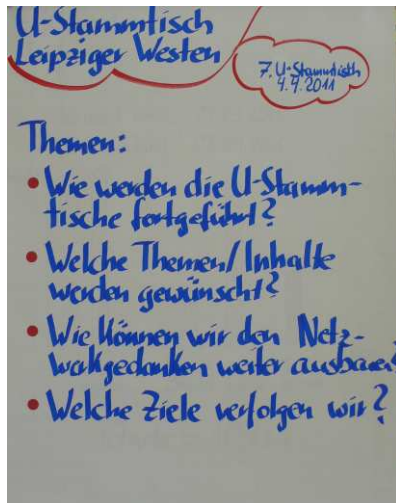 U-Stammtisch
Leipziger Westen
7. U-Stammtisch
4.4.2011
Themen:
• Wie werden die U-Stamm-
tische fortgeführt?
• Welche Themen/Inhalte
werden gewünscht?
• Wie können wir den Netz-
werkgedanken weiter ausbauen?
• Welche Ziele verfolgen wir?